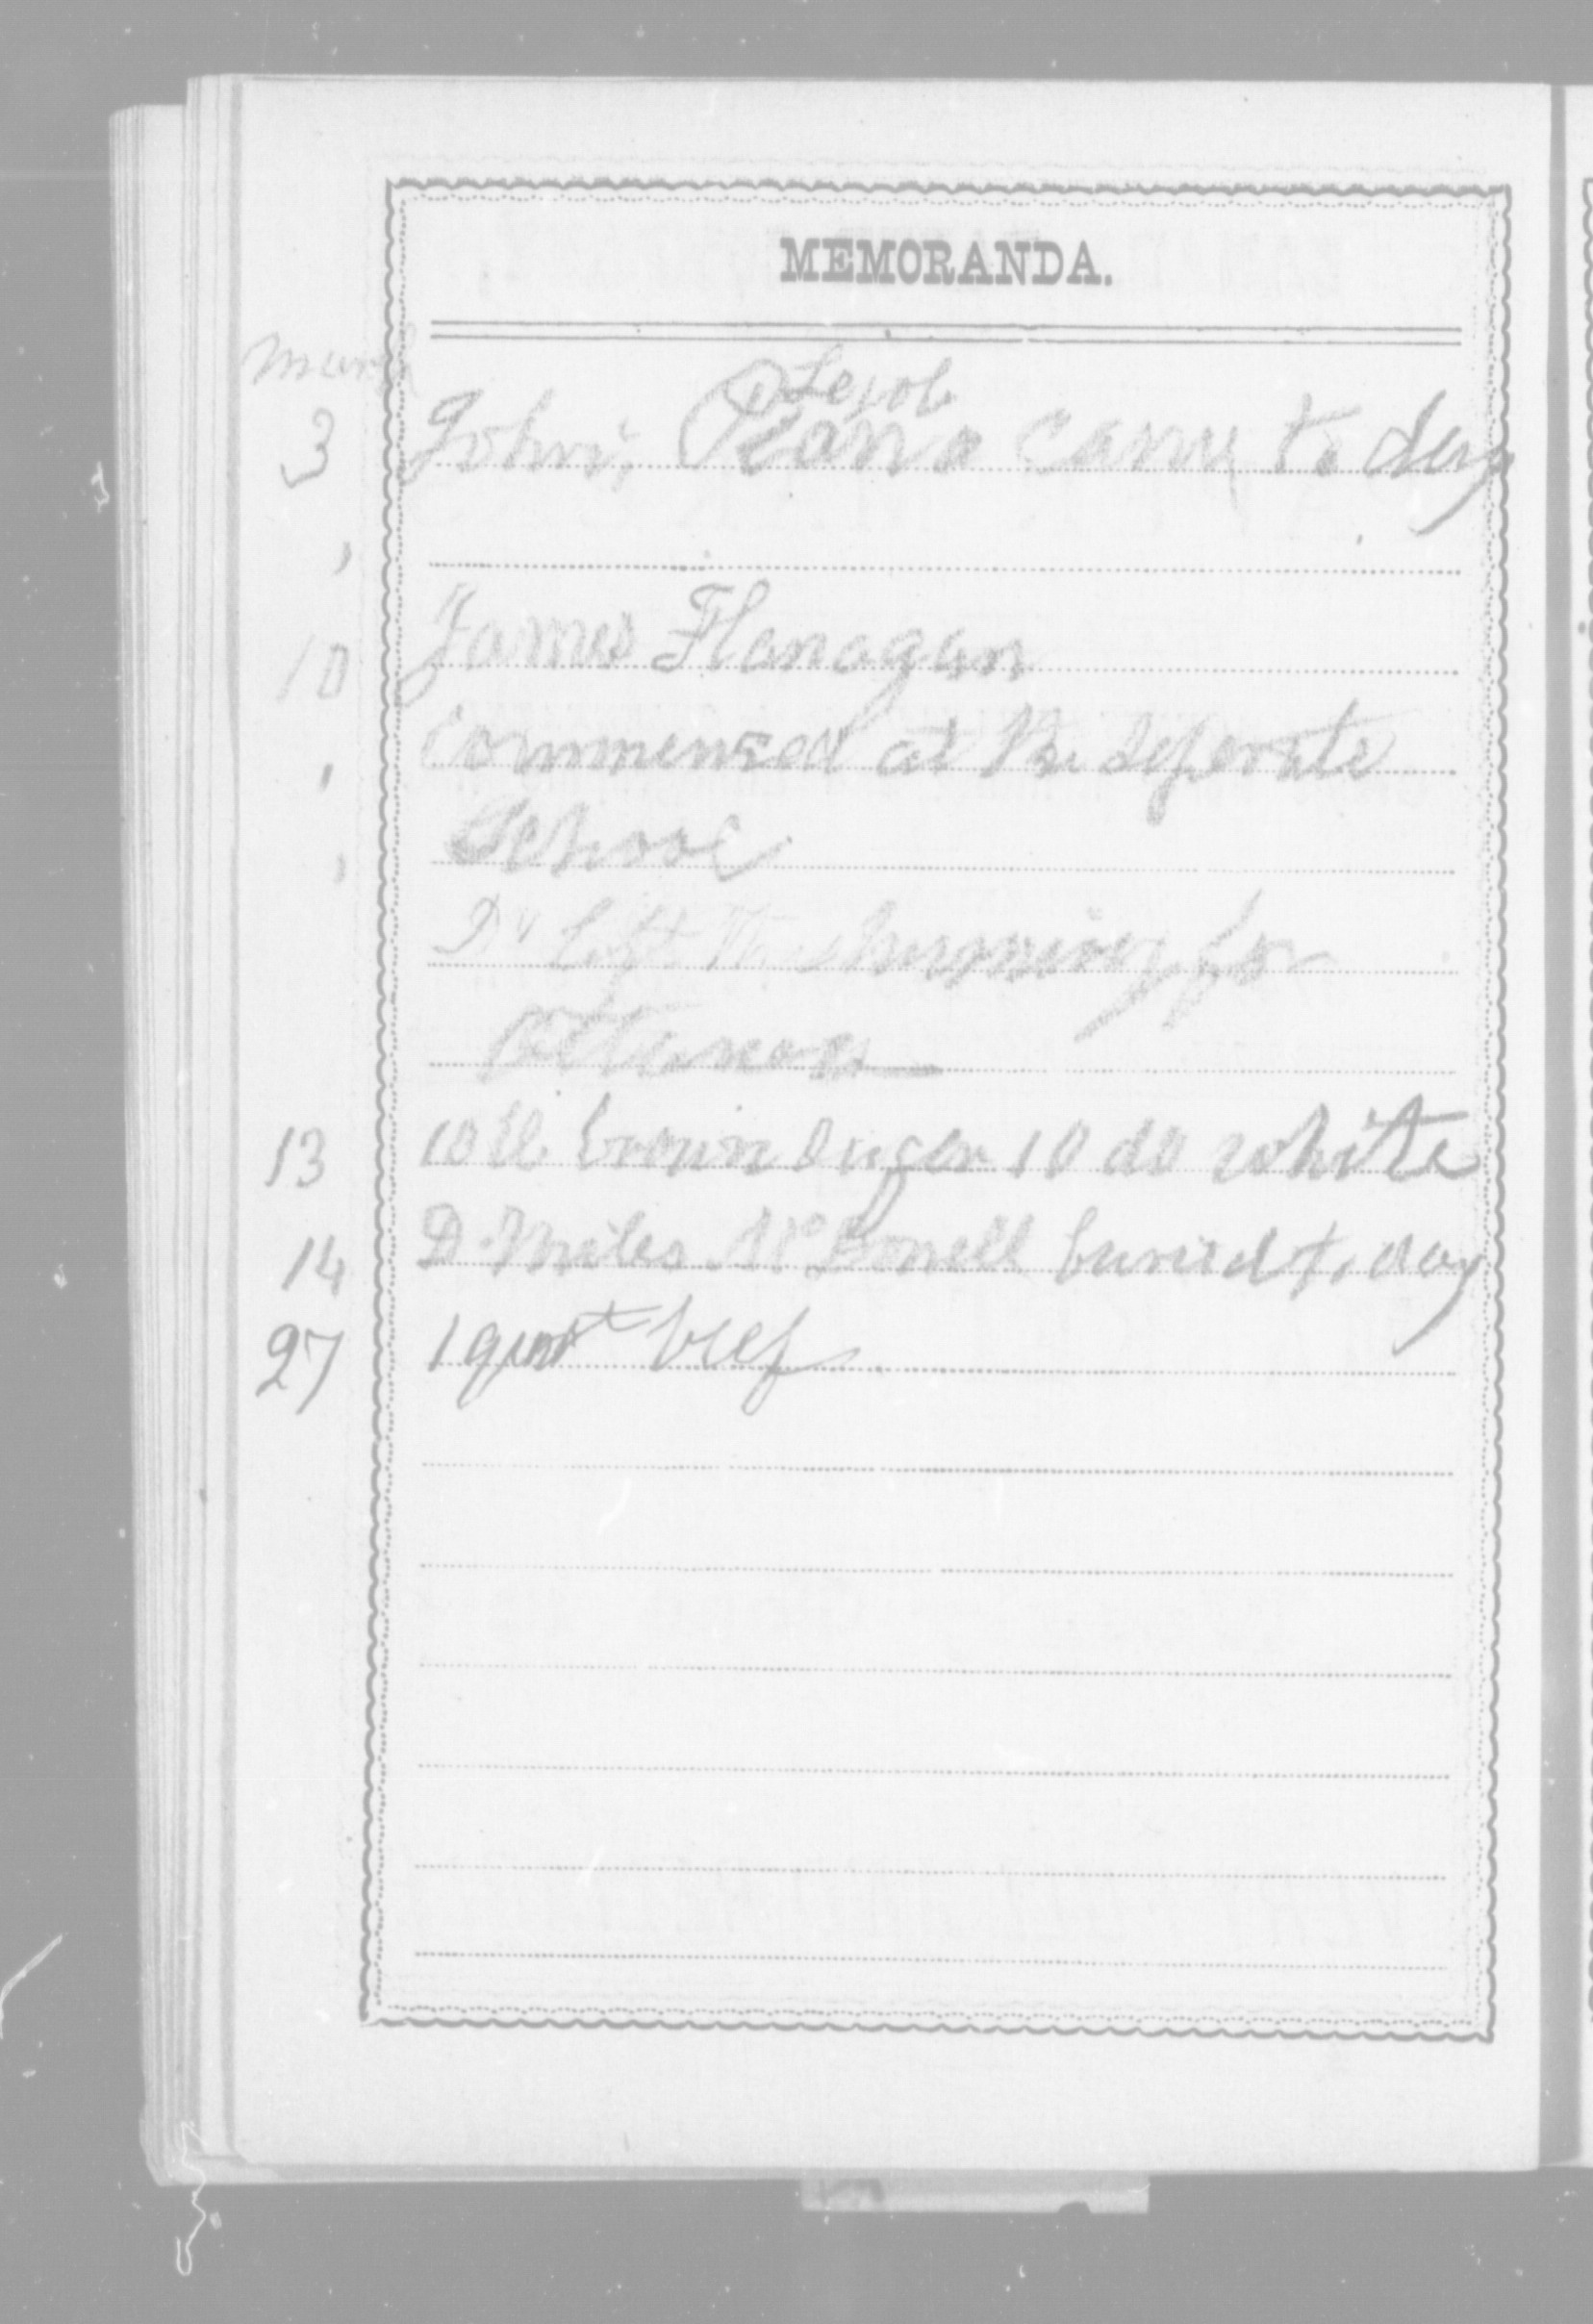 MEMORANDA.
March
3 John's Piano came to day
10 James Flanagan
commenced at the Seperate
School
Dr left this morning for
Ottawa
13 10 lb brown sugar 10 do white
14 D. Miles McDonell buried to day
27 1 qurt beef